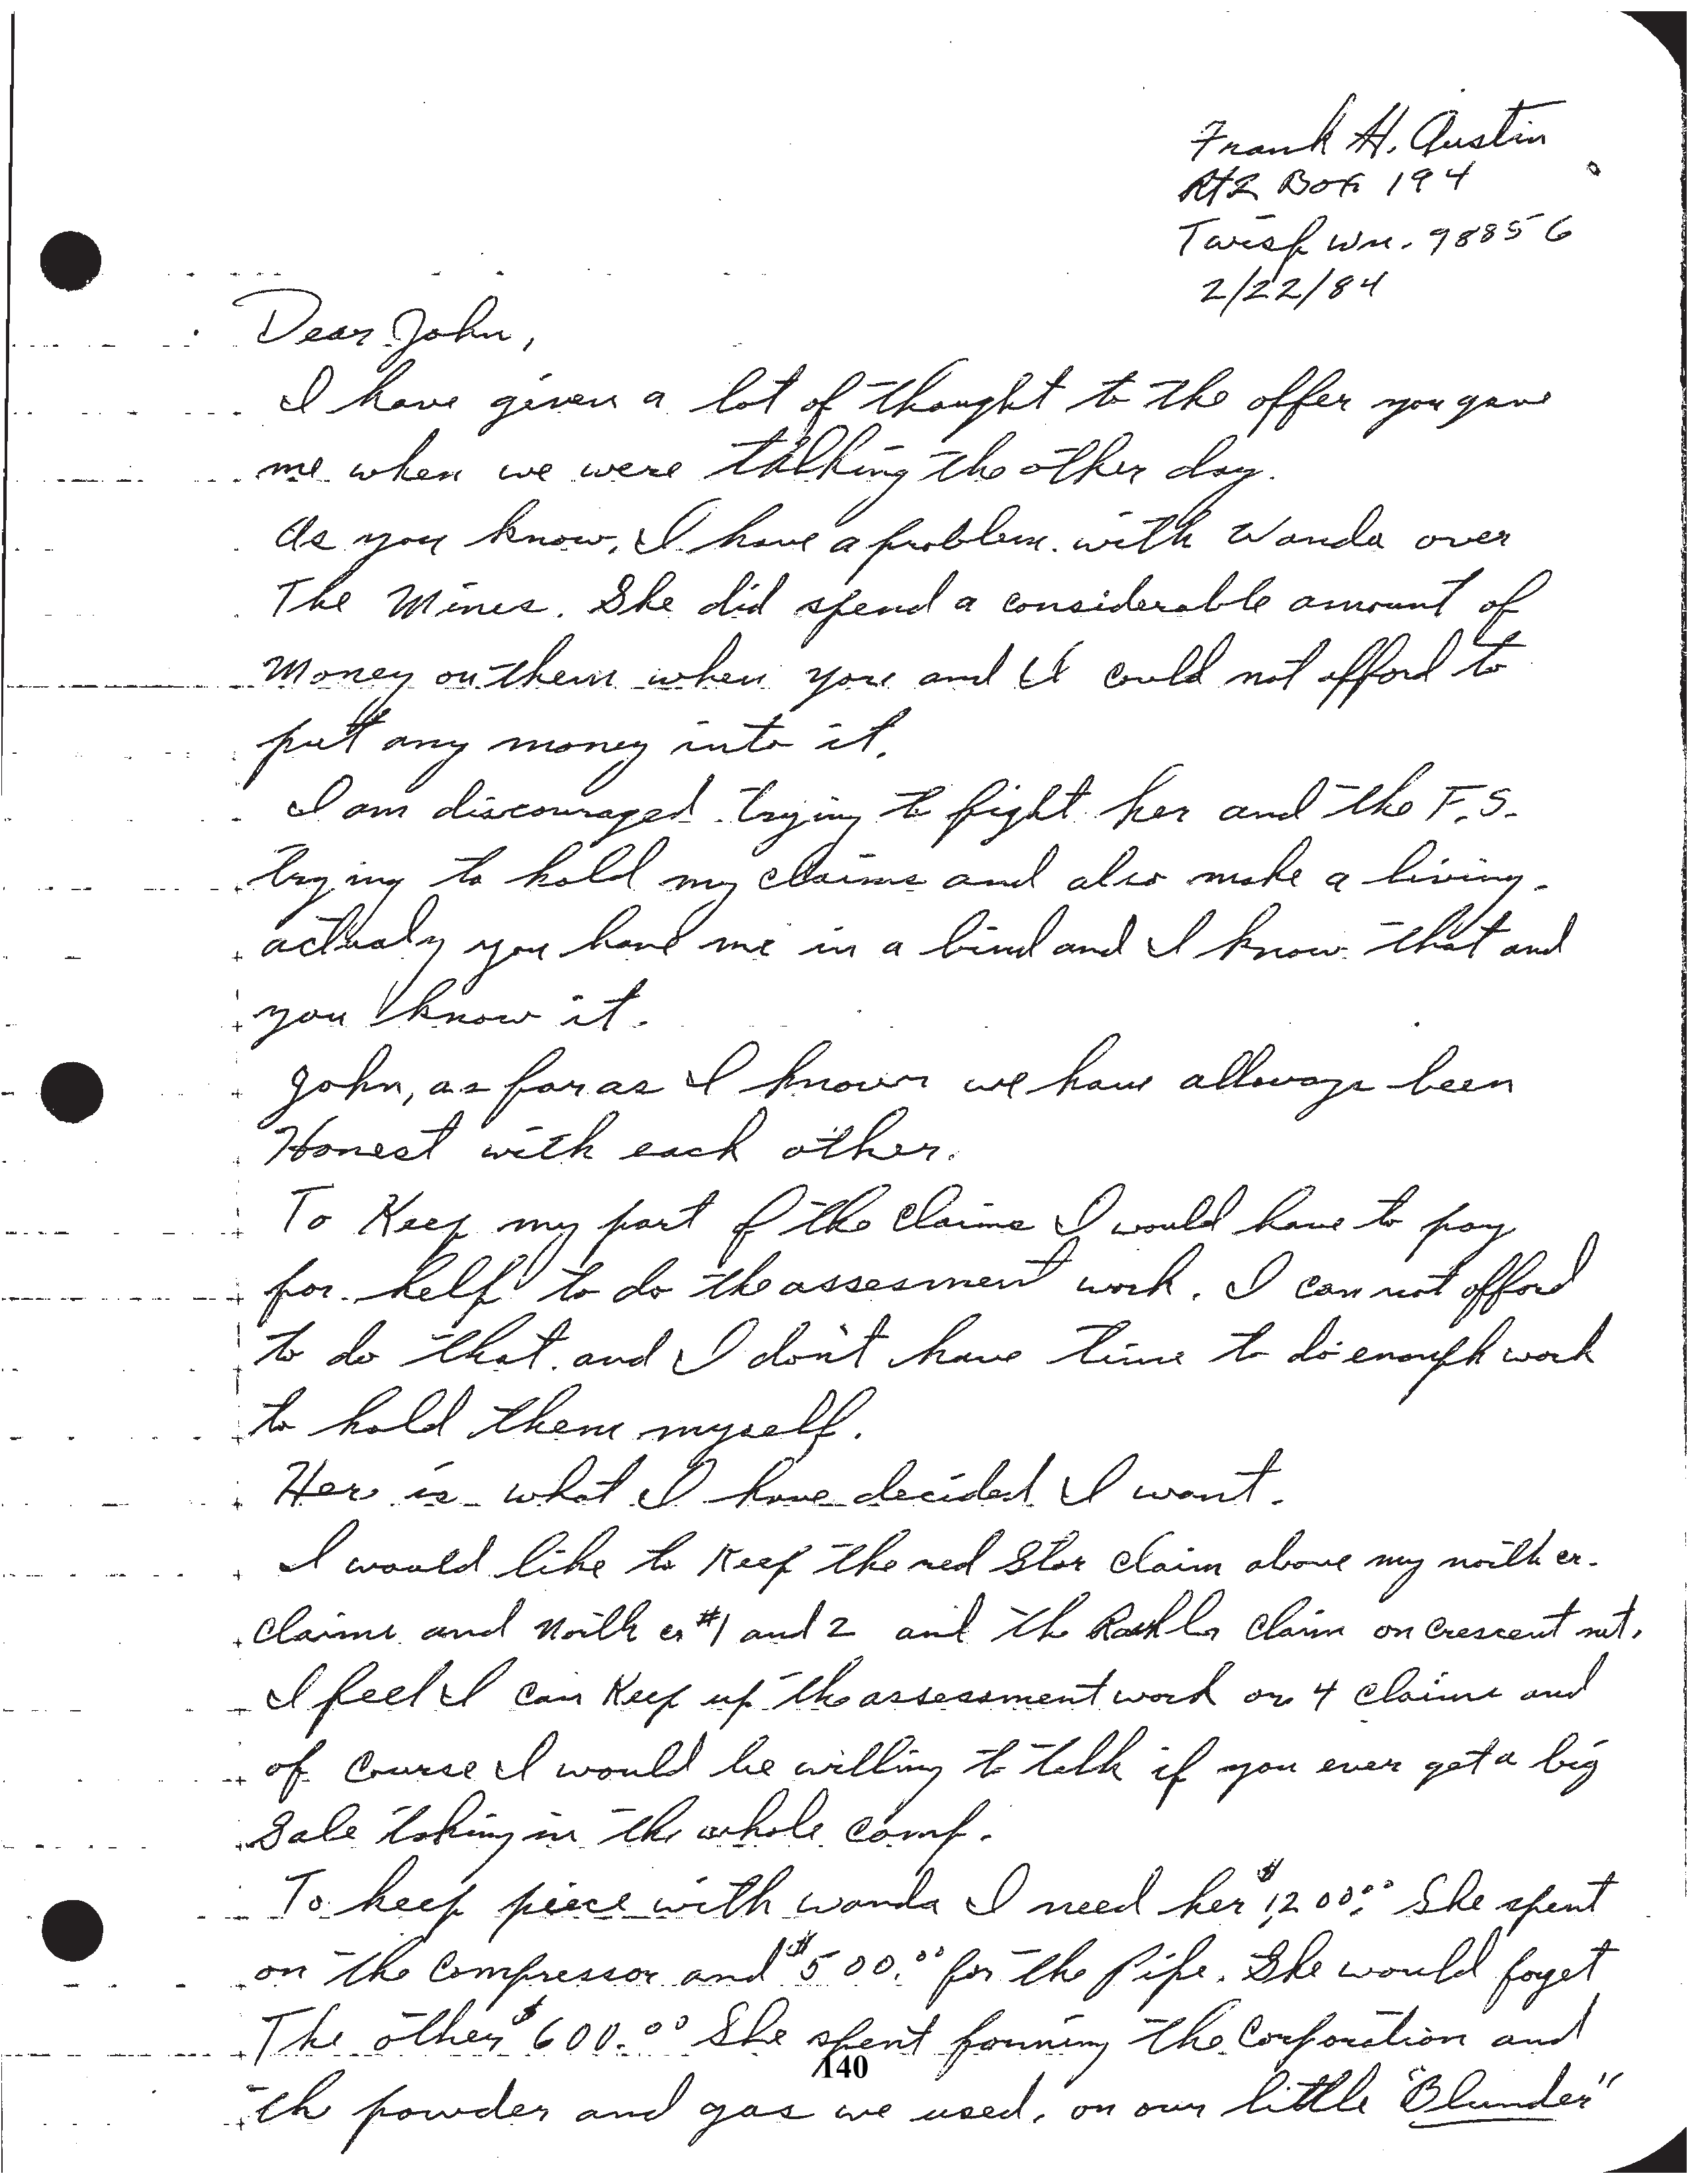 Frank H. Austin
Rt 2 Box 194
Twisp Wn. 98856
2/22/84
Dear John,
I have given a lot of thought to the offer you gave
me when we were talking the other day.
As you know, I have a problem with Wanda over
The Mines. She did spend a considerable amount of
Money on them when you and I could not afford to
put any money into it.
I am discouraged trying to fight her and the F.S.
trying to hold my claims and also make a living.
actualy you have me in a bind and I know that and
you know it.
John, as far as I know we have allways been
Honest with each other.
To Keep my part of the claims I would have to pay
for help to do the assesment work. I can not afford
to do that. and I don't have time to do enough work
to hold them myself.
Her is what I have decided I want.
I would like to Keep the red Star claim above my
claims and #1 and 2 and th claim on Crescent mt.
I feel I can Keep up the assessment work on 4 claims and
of Course I would be willing to talk if you ever get a big
Sale taking in the whole comp.
To keep piece with wanda I need her $1,200.00 She spent
on the Compressor and $500.00 for the pipe. She would foget
The other $600.00 She spent forming the Corporation and
th powder and gas we used, on our little "Blunder"
140